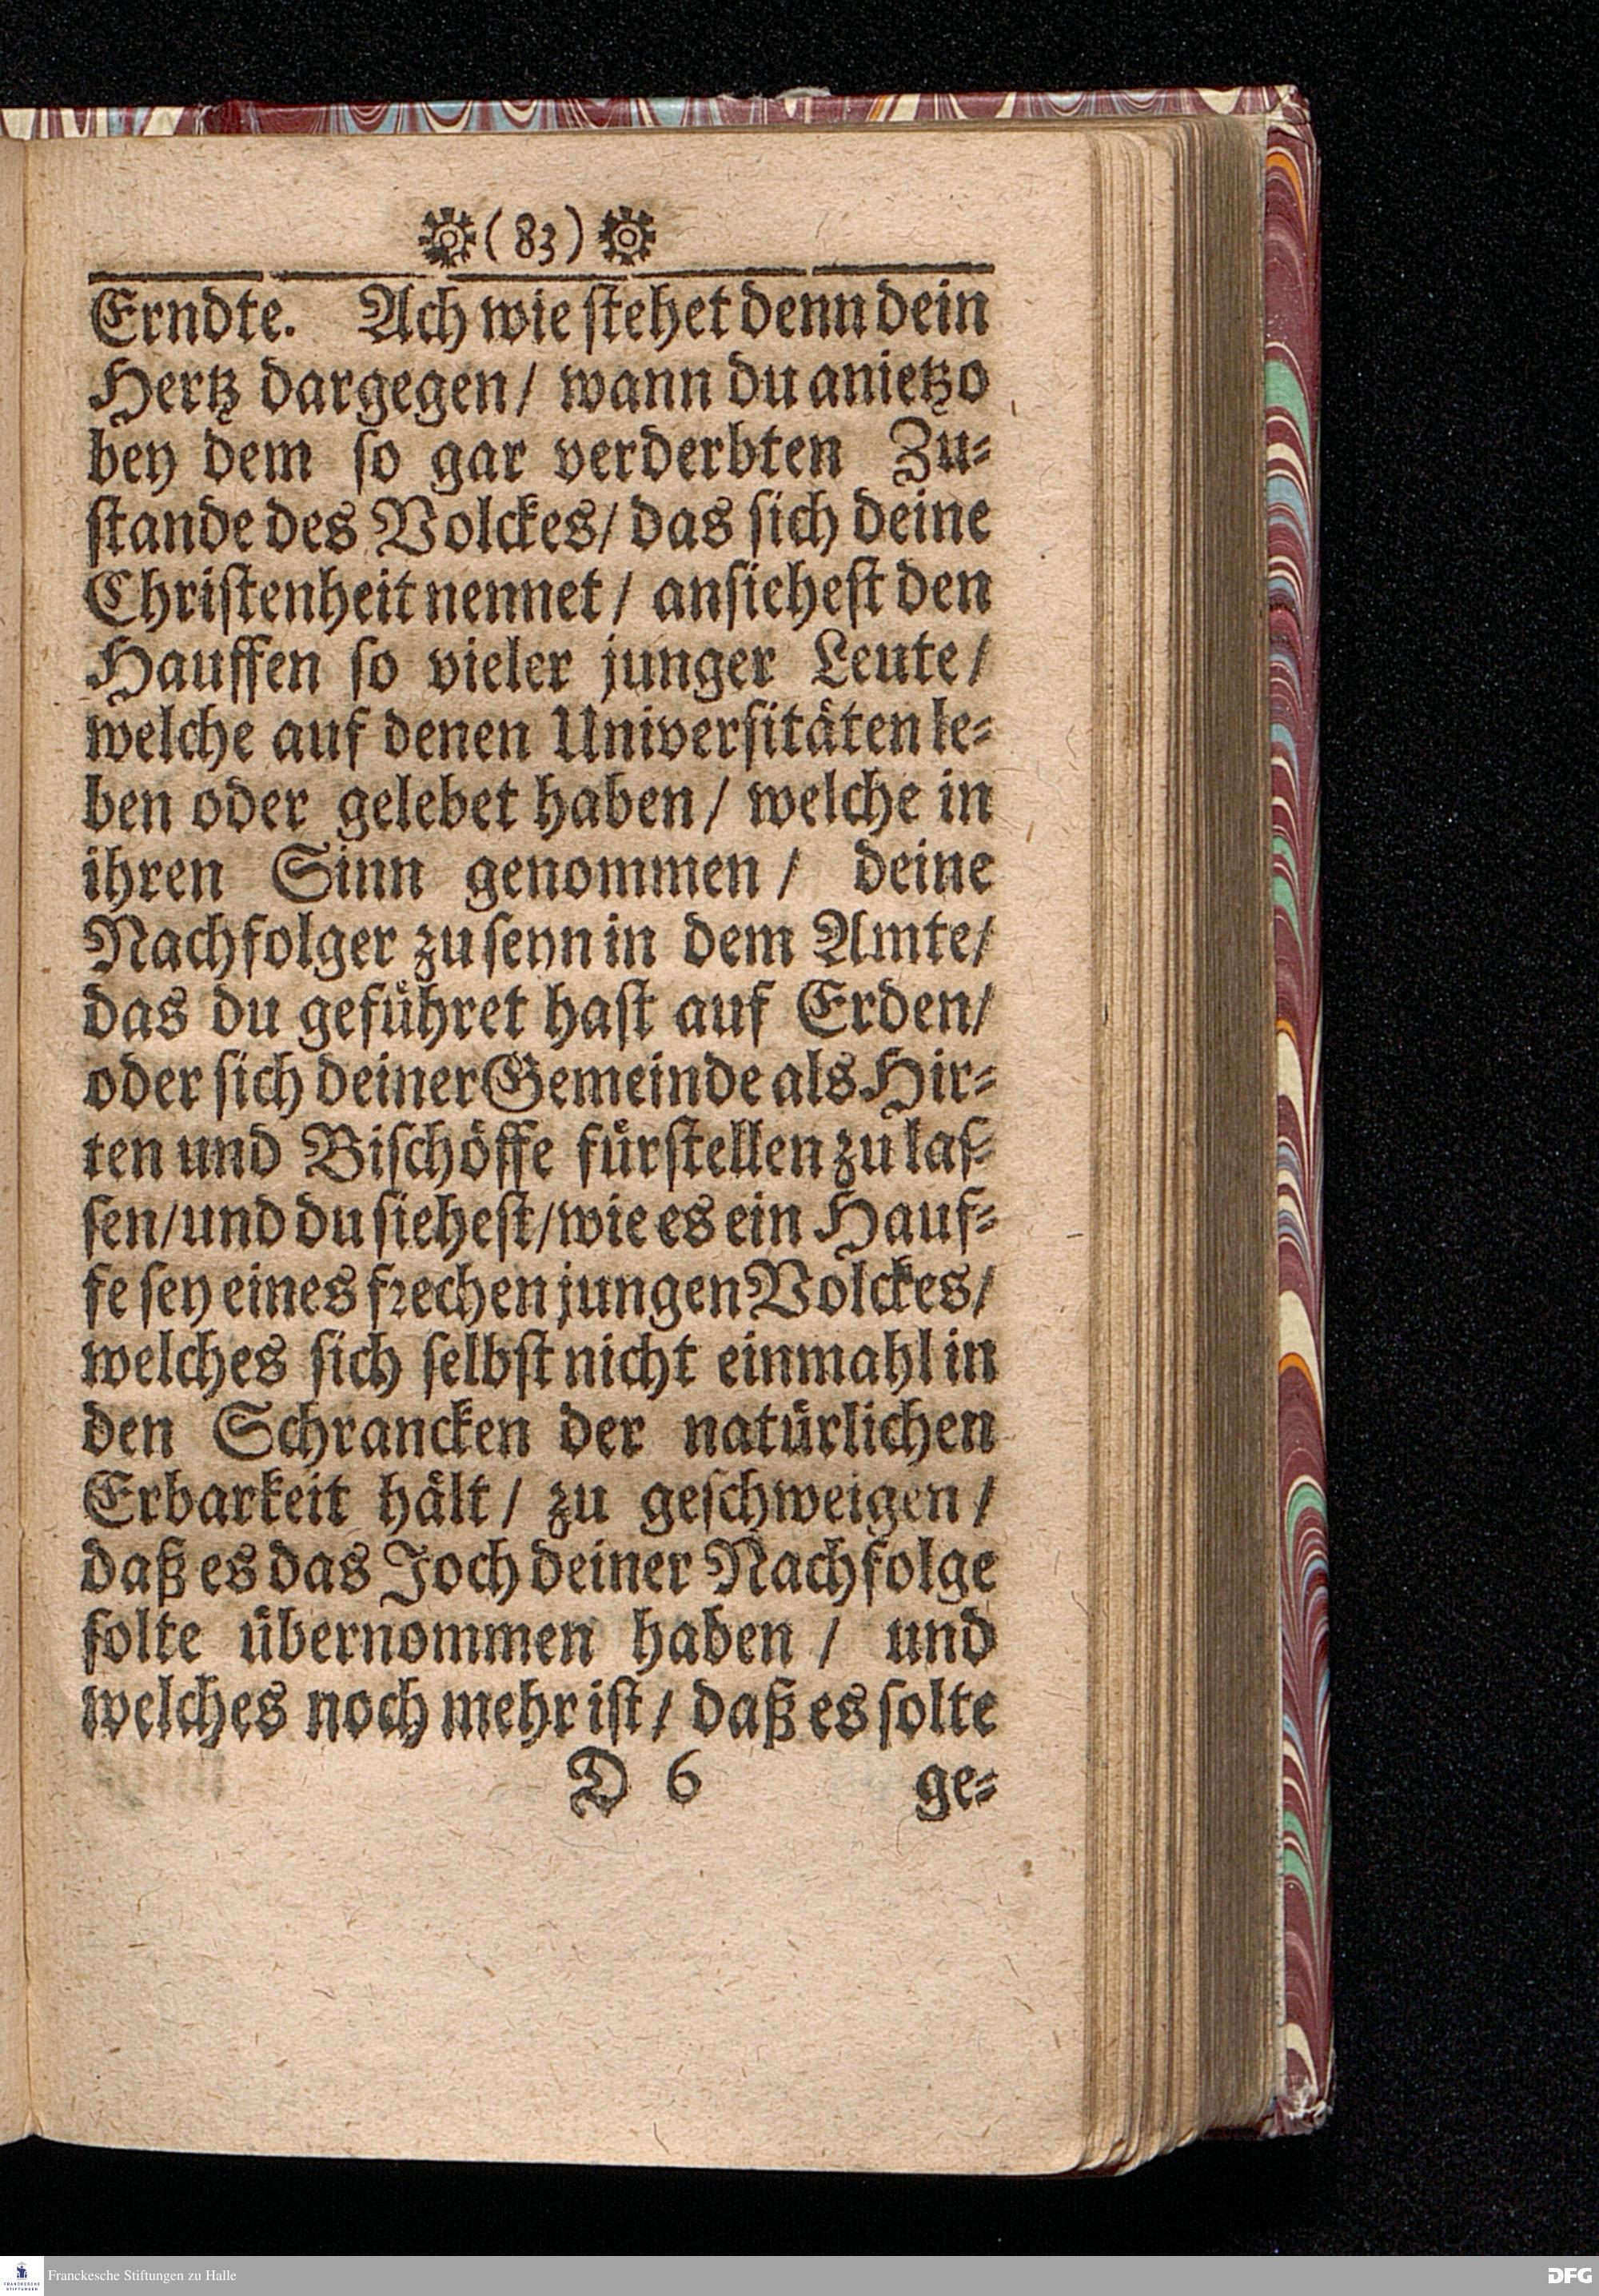 (83)
Erndte. Ach wie stehet denn dein
Hertz dargegen/ wann du anietzo
bey dem so gar verderbten Zu-
stande des Volckes/ das sich deine
Christenheit nennet/ ansiehest den
Hauffen so vieler junger Leute/
welche auf denen Universitäten le-
ben oder gelebet haben/ welche in
ihren Sinn genommen/ deine
Nachfolger zu seyn in dem Amte/
das du geführet hast auf Erden/
oder sich deiner Gemeinde als Hir-
ten und Bischöffe fürstellen zu las-
sen/und du siehest/wie es ein Hauf-
fe sey eines frechen jungen Volckes/
welches sich selbst nicht einmahl in
den Schrancken der natürlichen
Erbarkeit hält/ zu geschweigen/
daß es das Joch deiner Nachfolge
solte übernommen haben/ und
welches noch mehr ist/ daß es solte
D 6 ge-
Franckesche Stiftungen zu Halle
DFG